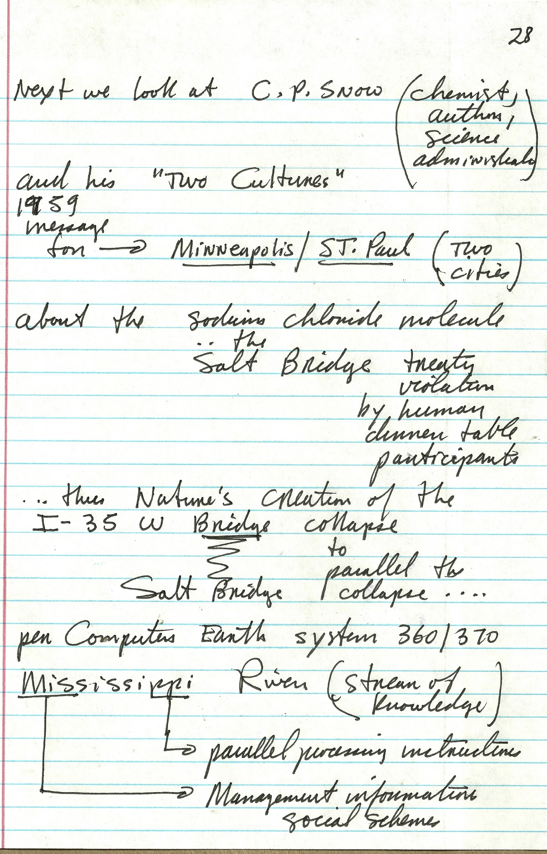 28
Next we look at C.P. Snow (chemist,
author,
science
administrator)
and his "Two Cultures"
1959
message
for → Minneapolis / ST. Paul (Two
cities)
about the sodium chloride molecule
.. the
Salt Bridge treaty
violation
by human
dinner table
participants
... thus Nature's creation of the
I-35 W Bridge collapse
to
parallel the
Salt Bridge collapse ....
per Computers Earth system 360/370
Mississippi River (stream of
knowledge)
→ parallel processing instructions
→ Management information
social schemes